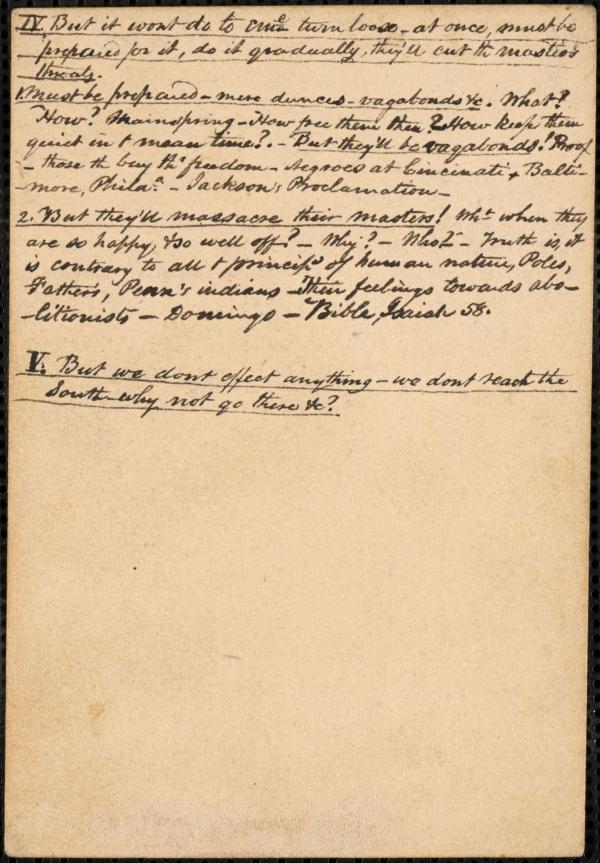 IV. But it wont do to emce turn loose - at once, must be
prepared for it, do it gradually, they'll cut th master's
throats.
1. Must be prepared - mere dunces - vagabonds &c. What?
How? Mainspring - How free them then? How keep them
quiet in t mean time? - But they'll be vagabonds! Proof
- those th buy thr freedom - Negroes at Cincinati & Balti-
-more, Phila. - Jackson's Proclamation -
2. But they'll massacre their masters! Wht when they
are so happy, & so well off? - Why? - Who? - Truth is, it
is contrary to all t princips of human nature, Poles,
Fathers, Penn's indians - Their feelings towards abo-
-litionists - Domingo - Bible, Isaiah 58.
V. But we dont effect anything - we dont reach the
South - why not go there &c?